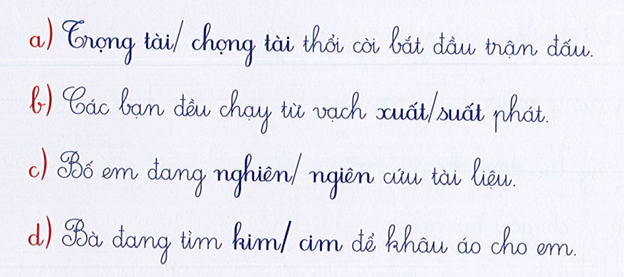 a) Trọng tài/ chọng tài thổi còi bắt đầu trận đấu.
b) Các bạn đều chạy từ vạch xuất/suất phát.
c) Bố em đang nghiên/ ngiên cứu tài liệu.
d) Bà đang tìm kim/ cim để khâu áo cho em.